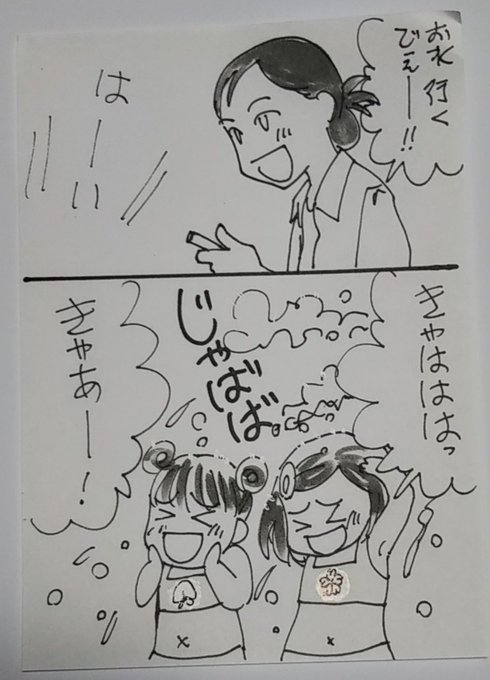 お水行く
でぇー!!
はーい
きゃはははっ
じゃばばば
きゃあー!